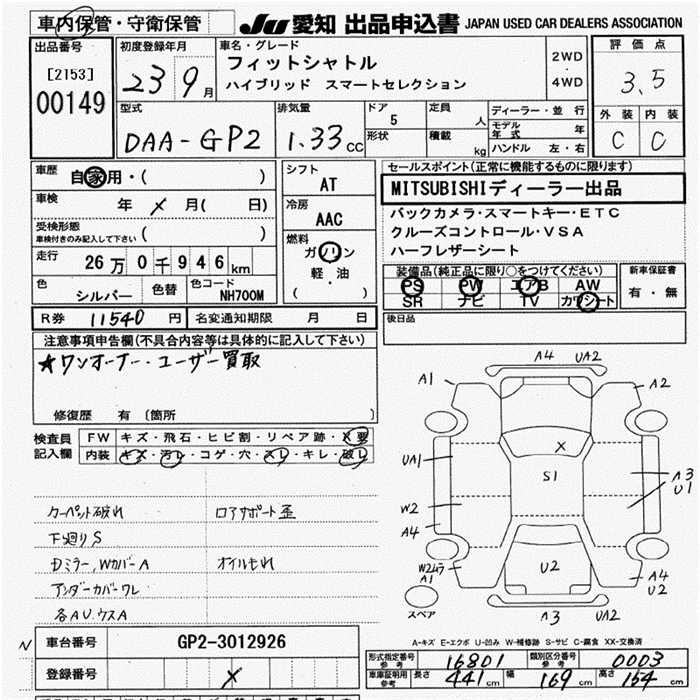 車内保管・守衛保管
JU 愛知 出品申込書 JAPAN USED CAR DEALERS ASSOCIATION
出品番号
[2153]
00149
初度登録年月
23 9月
車名・グレード
フィットシャトル
ハイブリッド スマートセレクション
2WD
・
4WD
評価点
3.5
外装 内装
C C
型式
DAA-GP2
排気量
1.33 CC
ドア
5
形状
定員
人
積載
kg
ディーラー・並行
モデル年式 年
ハンドル 左・右
車歴
自家用・( )
車検
年 〆 月( 日)
受検形態
車検付きのみ記入して下さい ( )
走行
26万0千946km
色
シルバー
色替
色コード
NH700M
シフト
AT
冷房
AAC
燃料
ガソリン
軽・油
( )
セールスポイント(正常に機能するものに限ります)
MITSUBISHIディーラー出品
バックカメラ・スマートキー・ETC
クルーズコントロール・VSA
ハーフレザーシート
装備品(純正品に限り○をつけてください)
PS PW エアB AW
SR ナビ TV カワシート
新車保証書
有・無
R券 11540 円
名変通知期限 月 日
後日品
注意事項申告欄(不具合内容等は具体的に記入して下さい)
★ワンオーナー・ユーザー買取
修復歴 有 〔箇所 〕
検査員記入欄
FW キズ・飛石・ヒビ割・リペア跡・X要
内装 キズ・汚レ・コゲ・穴・スレ・キレ・破レ
カーペット破れ ロアサポート歪
下廻りS
Dミラー,Wカバー A オイルもれ
アンダーカバーワレ
各AU,ウスA
A4 UA2
A1 A2
X
UA1 S1 A3
U1
W2
A4
W2ムラ
A1 U2 A4
U2
スペア A3 UA2
A-キズ E-エクボ U-凹み W-補修跡 S-サビ C-腐食 XX-交換済
N 車台番号 GP2-3012926
登録番号 〆
形式指定番号 参考 16801
類別区分番号 参考 0003
車庫証明用 参考 長さ 441cm 幅 169cm 高さ 154cm